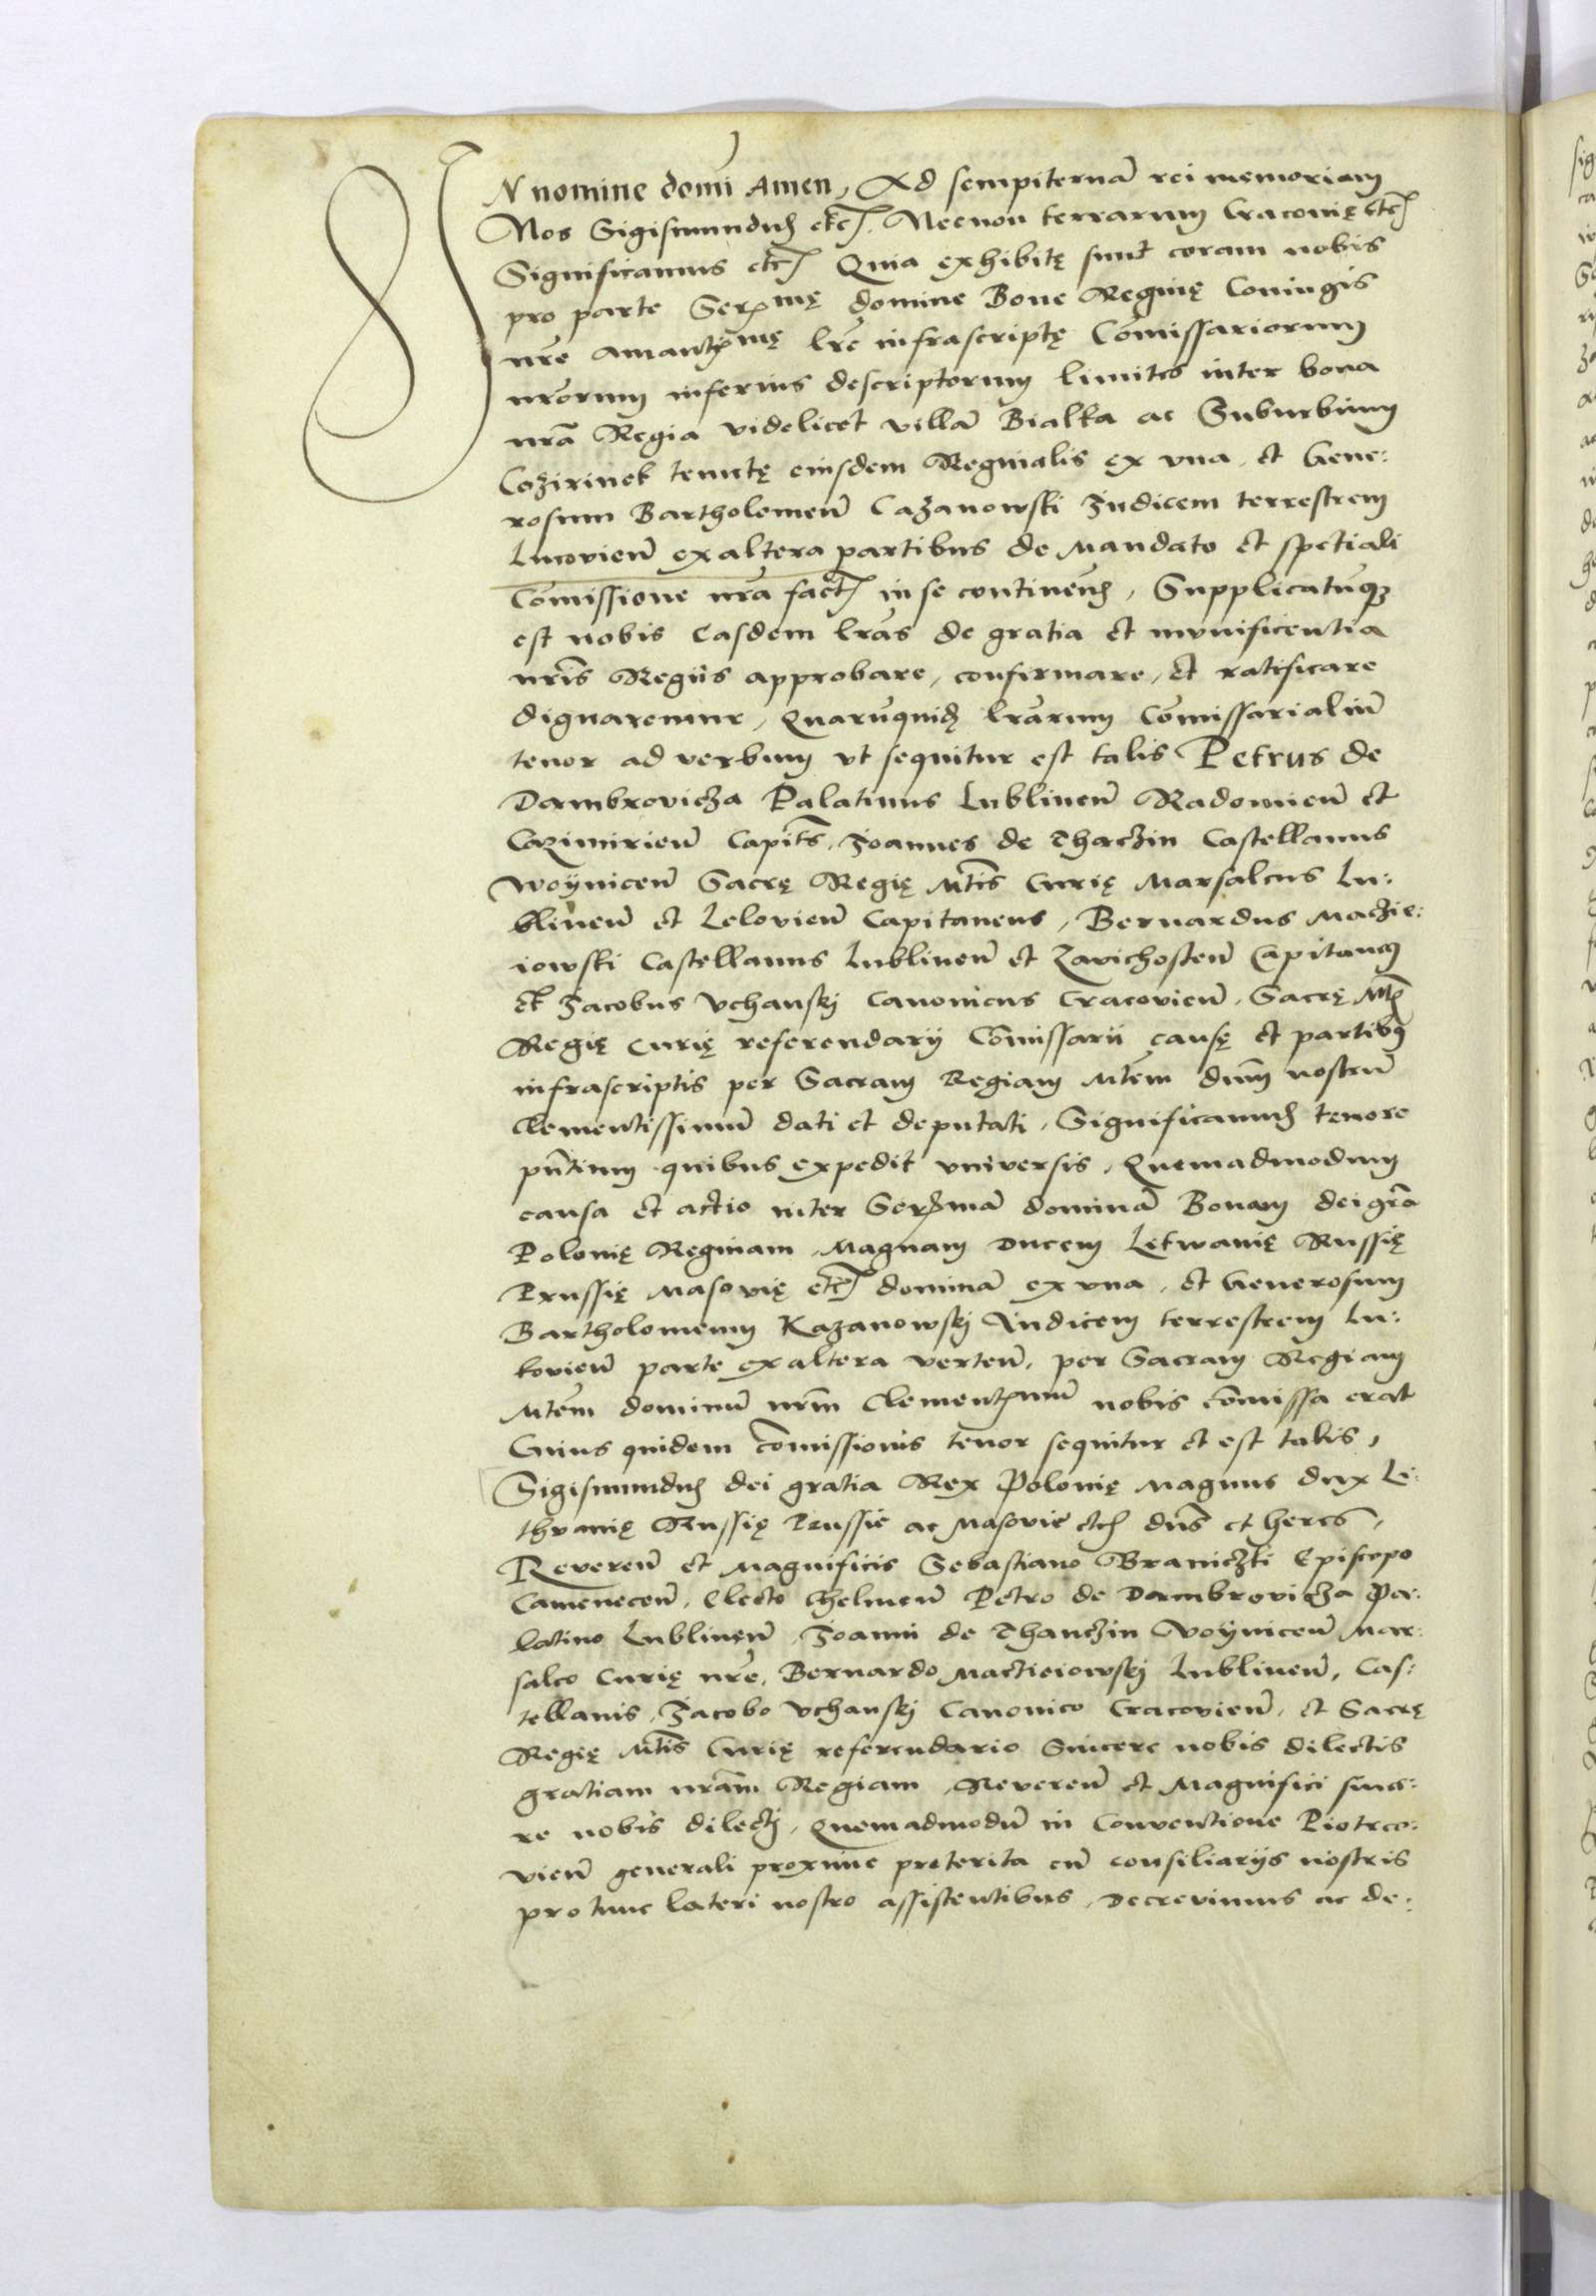 IN nomine domi Amen, Ad sempiternā rei memoriam
Nos Sigismundus etc. Necnon terrarum Cracouię etc
Significamus etc Quia exhibitę sunt coram nobis
pro parte Serᵐę domine Bone Reginę Coniugis
nr̄e amantᵐę lr̄e infrascriptę Cōmissariorum
nr̄orum inferius descriptorum limites inter bona
nr̄a Regia videlicet villā Bialka ac Suburbium
Cozirinek tenutę eiusdem Reginalis ex vna, et Gene:
rosum Bartholomeū Cazanowski Iudicem terrestrem
Lucovieñ ex altera partibus de Mandato et spetiali
Comissione nr̄a fact in se continen̄, Supplicatūq;
est nobis Easdem lr̄as de gratia et mvnificentia
nr̄is Regiis approbare, confirmare, et ratificare
dignaremur, Quarūquid lr̄arum Cōmissarialiū
tenor ad verbum vt sequitur est talis Petrus de
Dambrovicza Palatinus Lublineñ Radomieñ et
Cazimirieñ Capits, Ioannes de Thaczin Castellanus
Woyniceñ Sacrę Regię Mtis Curię Marsalcus Lu:
blineñ et Lelovieñ Capitaneus, Bernardus Maczie:
iowski Castellanus Lublineñ et Zavichosteñ Capitaneus
et Iacobus Vchanskj Canonicus Cracovieñ, Sacrę Mtis
Regię Curię referendarij Cōmissarii causę et partibus
infrascriptis per Sacram Regiam Mtem dnm nostrū
Clementissimū dati et deputati, Significamus tenore
pn̄tium quibus expedit vniversis, Quemadmodum
causa et actio inter Serᵐmā dominā Bonam dei gr̄a
Polonię Reginam, Magnam Ducem Letwanię Russię
Prussię Masovię etc dominā ex vna, et Generosum
Bartholomeum Kazanowskj Iudicem terrestrem Lu:
kovieñ parte ex altera verteñ, per Sacram Regiam
Mtem dominū nr̄m Clementᵐmū nobis cōmissa erat
Cuius quidem cōmissionis tenor sequitur et est talis,
Sigismundus dei gratia Rex Polonię Magnus dux Li:
thvanię Russię Prussie ac Masovie etc dn̄s et heres,
Revereñ et Magnificis Sebastiano Braniczki Episcopo
Cameneceñ, Electo Chelmeñ Petro de Dambrovicza Pa:
latino Lublineñ, Ioanni de Thanczin Woyniceñ Mar:
salco Curię nr̄e, Bernardo Mactieiowskj Lublineñ, Cas:
tellanis, Iacobo Vchanskj Canonico Cracovieñ, et Sacrę
Regię Mtis Curię referendario Sincere nobis dilectis
gratiam nr̄am Regiam, Revereñ et Magnifici since:
re nobis dilectj, Quemadmodū in Conventione Piotrco:
vieñ generali proxime preterita cū consiliariis nostris
pro tunc lateri nostro assistentibus, Decrevimus ac de: